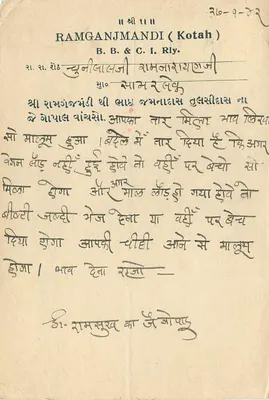 ॥ श्री ॥
२७-१-४२
RAMGANJMANDI (Kotah)
B. B. & C. I. Rly.
रा. रा. शेठ चुनीलालजी रामनारायणजी
मु० सामरलेक
श्री रामगंजमंडी थी भाई जमनादास तुलसीदास ना
जे गोपाल वांचसो. आपका तार मिला भाव लिखा
सो मालूम हुआ। बदले में तार दिया है कि अगर
वगन लोड नहीं हुई होवे तो वहीं पर बेचो सो
मिला होगा और अगर माल लोड हो गया होवे तो
बील्टी जल्दी भेज देना या वहीं पर बेच
दिया होगा आपकी चीट्ठी आने से मालूम
होगा। भाव देना
द: रामसुख का जै गोपाल